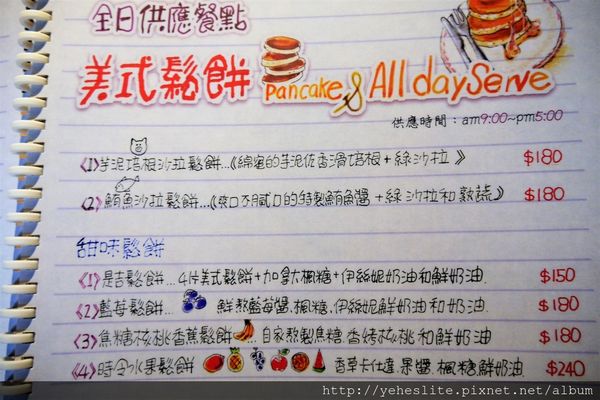 全日供應餐點
美式鬆餅 Pancake & All day Serve
供應時間：am9:00~pm5:00
<1>芋泥培根沙拉鬆餅...《綿密的芋泥佐香滑培根+綠沙拉》 $180
<2>鮪魚沙拉鬆餅...《爽口不膩口的特製鮪魚醬+綠沙拉和熟蔬》 $180
甜味鬆餅
<1>是吉鬆餅...4片美式鬆餅+加拿大楓糖+伊絲妮奶油和鮮奶油 $150
<2>藍莓鬆餅... 鮮熬藍莓醬.楓糖.伊絲妮鮮奶油和奶油. $180
<3>焦糖核桃香蕉鬆餅... 自家熬製焦糖.香烤核桃和鮮奶油 $180
<4>時令水果鬆餅 香草卡仕達.果醬.楓糖鮮奶油. $240
http://yeheslite.pixnet.net/album